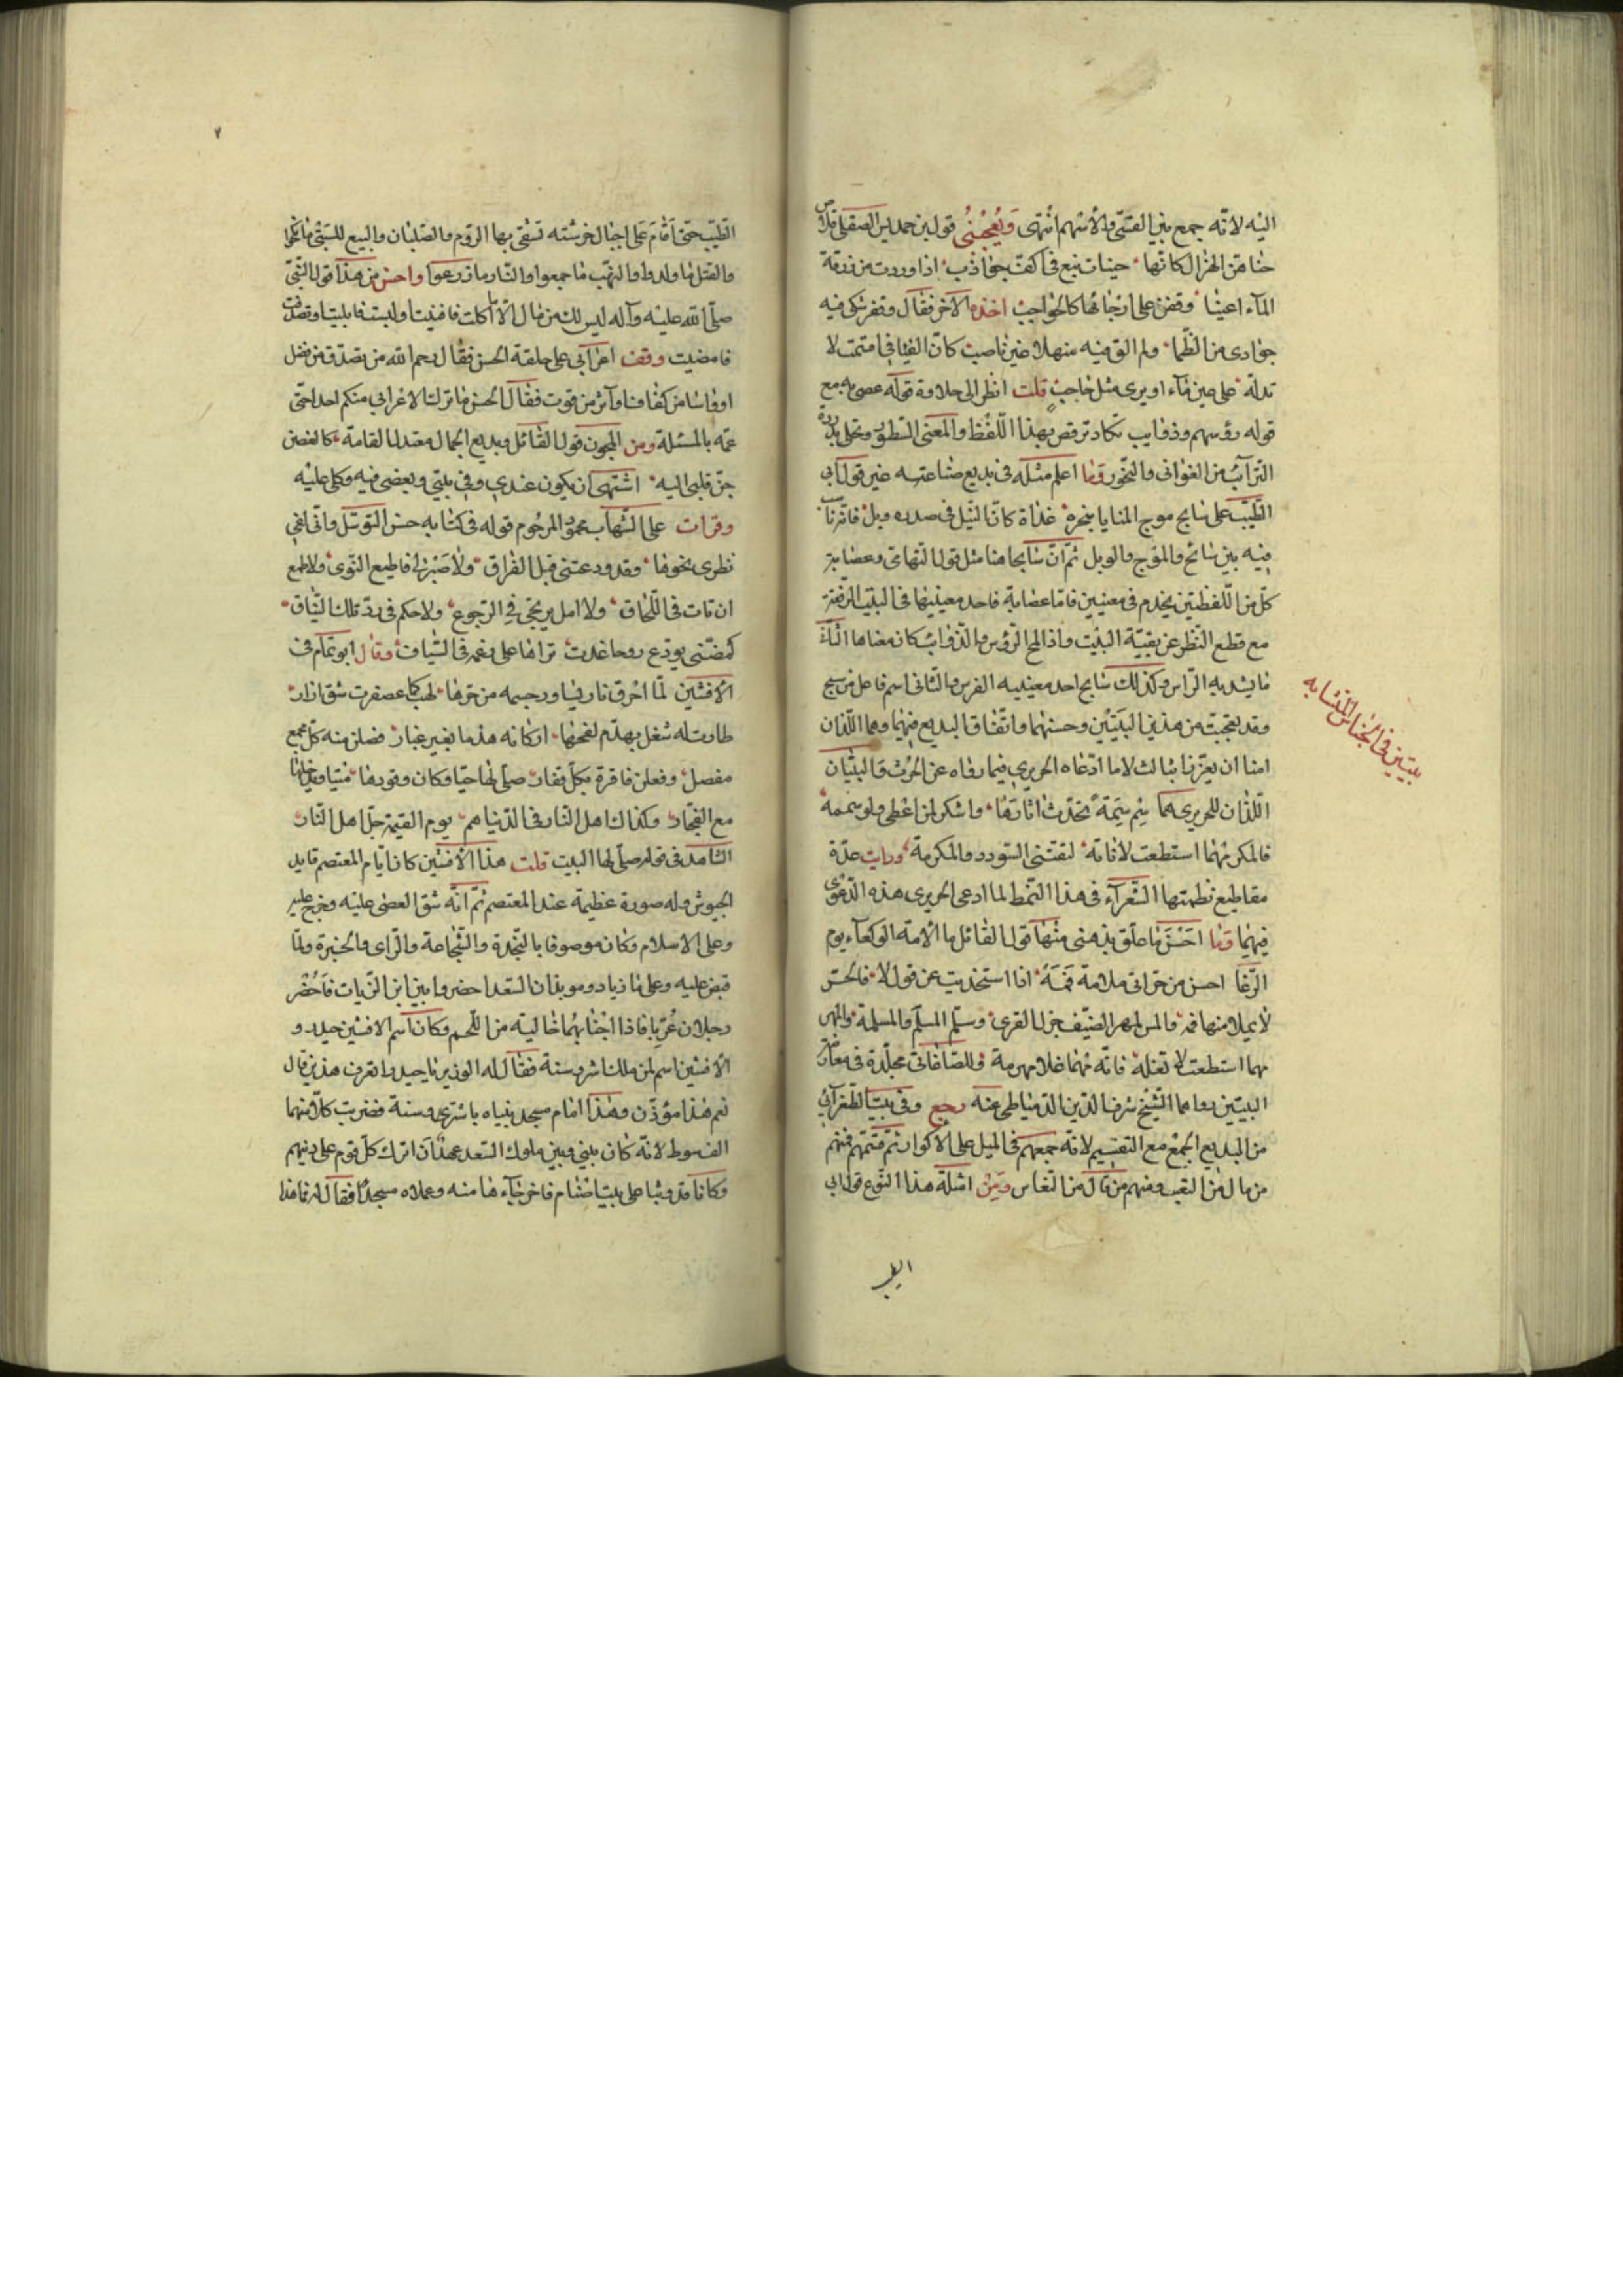 اليه لانه جمع بين القسى والأسهم انتهى ويعجبنى قول بن حمديس الصقلى قلاص
حناهن الهزال كانها حنيات نبع فى اكف جواذب اذا وردت من زرقة
المآء اعينا وقفن على ارجائها كالحواجب اخذه الآخر فقال وقفر شكى فيه
جوادى من الظما ولم الق فيه منهلا غير ناصب كان الفيافى
تدله على عين مآء او يرى مثل حاجب قلت انظر الى حلاوة قوله عصى به مع
قوله رؤسهم وذوايب تكاد ترقص بهذا اللفظ والمعنى السطور وتحلى بدرره
الترآئب من الغوانى والنحور وما اعلم مثله فى بديع صناعته غير قول ابى
الطيب على سابح موج المنايا بنحره غداة كان النبل فى صدره وبل فانه ناسب
فيه بين سابح والموج والوبل ثم ان سابحا هنا مثل قول التهامى وعصابة
كل من اللفظتين يخدم فى معنيين فاما عصابة فاحد معنييها فى البيت الرفقة
مع قطع النظر عن بقية البيت واذا لمح الرؤس والذوائب كان معناها الثانى
ما يشد به الراس وكذلك سابح احد معنييه الفرس والثانى اسم فاعل من سبح
وقد تعجبت من هذين البيتين وحسنهما واتفاق البديع فيهما وهما اللذان
امنا ان يعززا بثالث لا ما ادعاه الحريرى فيما رواه عن الحرث والبيتان
اللذان للحريرى هما سم سمة تحدث اثارها واشكر لمن اعطى ولو سمسمه
فالمكر مهما استطعت لا تاته لتقتنى السودد والمكرمة ورايت عدة
مقاطيع نظمتها الشعرآء فى هذا النمط لما ادعى الحريرى هذه الدعوى
فيهما وما احسن ما علق بذهنى منها قول القائل يا الأمة الوكعآء يوم
احسن من حر اتى ملامة فمه اذا استجديت عن قول لا فالحر
لا يملا منها فمه والمس لمهر الضيف جزل القرى وسلم المسلم والمسلمة والمهر
مهما استطعت لا تغله فانه مهما غلا مهرمة وللصاغانى مجلدة فى معارضة
البيتين رواهما الشيخ شرف الدين الدمياطى عنه رجع وفى بيت الطغرآئى
من البديع الجمع مع التقسيم لانه جمعهم فى الميل على الأكوار ثم قسمهم فمنهم
من مال من التعب ومنهم من مال من النعاس ومن امثلة هذا النوع قول ابى
بيتين فى الجناس المتشابه
الطيب حتى اقام على اجبال خرشنه تشقى بها الروم والصلبان والبيع للسبى ما نكحوا
والقتل ما ولدوا والنهب ما جمعوا والنار ما زرعوا واحسن من هذا قول النبى
صلى الله عليه وآله ليس لك من مالك الا ما اكلت فافنيت او لبست فابليت او تصدقت
فامضيت وقف اعرابى على حلقة الحسن فقال رحم الله من تصدق من فضل
او واسا من كفاف او آثر من قوت فقال الحسن ما ترك الاعرابى منكم احدا حتى
عمه بالمسئلة ومن المجون قول القائل وبديع الجمال معتدل القامة كالغصن
حن قلبى اليه اشتهى ان يكون عندى وفى بيتى وبعضى فيه وكلى عليه
وقرات على الشهاب محمود المرحوم قوله فى كتابه حسن التوسل وانى لفى
نظرى نحوها وقد ودعتنى قبل الفراق ولا صبر لى فاطيع النوى ولا طمع
ان تات فى اللحاق ولا امل يرتجى فى الرجوع ولا حكم فى رد تلك النياق
كمضنى يودع روحا غدت تراها على رغمه فى السياق وقال ابو تمام فى
الأفشين لما احرق ناريا ورجيمه من حرها لهب كما عصفرت شق ازار
طارت له شعل يهدم لفحها اركانه هدما بغير غبار فصلن منه كل مجمع
مفصل وفعلن فاقرة بكل فقار صلى لها حيا وكان وقودها ميتا ويدخلها
مع الفجار وكذاك اهل النار فى الدنيا هم يوم القيمة جل اهل النار
الشاهد فى قوله صلى لها البيت قلت هذا الأفشين كان ايام المعتصم قايد
الجيوش وله صورة عظيمة عند المعتصم ثم انه شق العصى عليه وخرج عليه
وعلى الاسلام وكان موصوفا بالنجدة والشجاعة والراى والخبرة ولما
قبض عليه وعلى مازيار وموبذان السغد احضروا بين ابن الزيات فاحضر
رجلان عريا فاذا اجنابهما خالية من اللحم وكان اسم الافشين حيدر و
الأفشين اسم لمن ملك اشروسنة فقال له الوزير يا حيدر اتعرف هذين قال
نعم هذا مؤذن وهذا امام مسجد بنياه باشروسنة فضربت كلا منهما
الف سوط لانه كان بينى وبين ملوك السغد عهد ان اترك كل قوم على دينهم
وكانا قد وثبا على بيت اصنام فاخرجا ما منه وعملاه مسجدا فقال له فما هذا